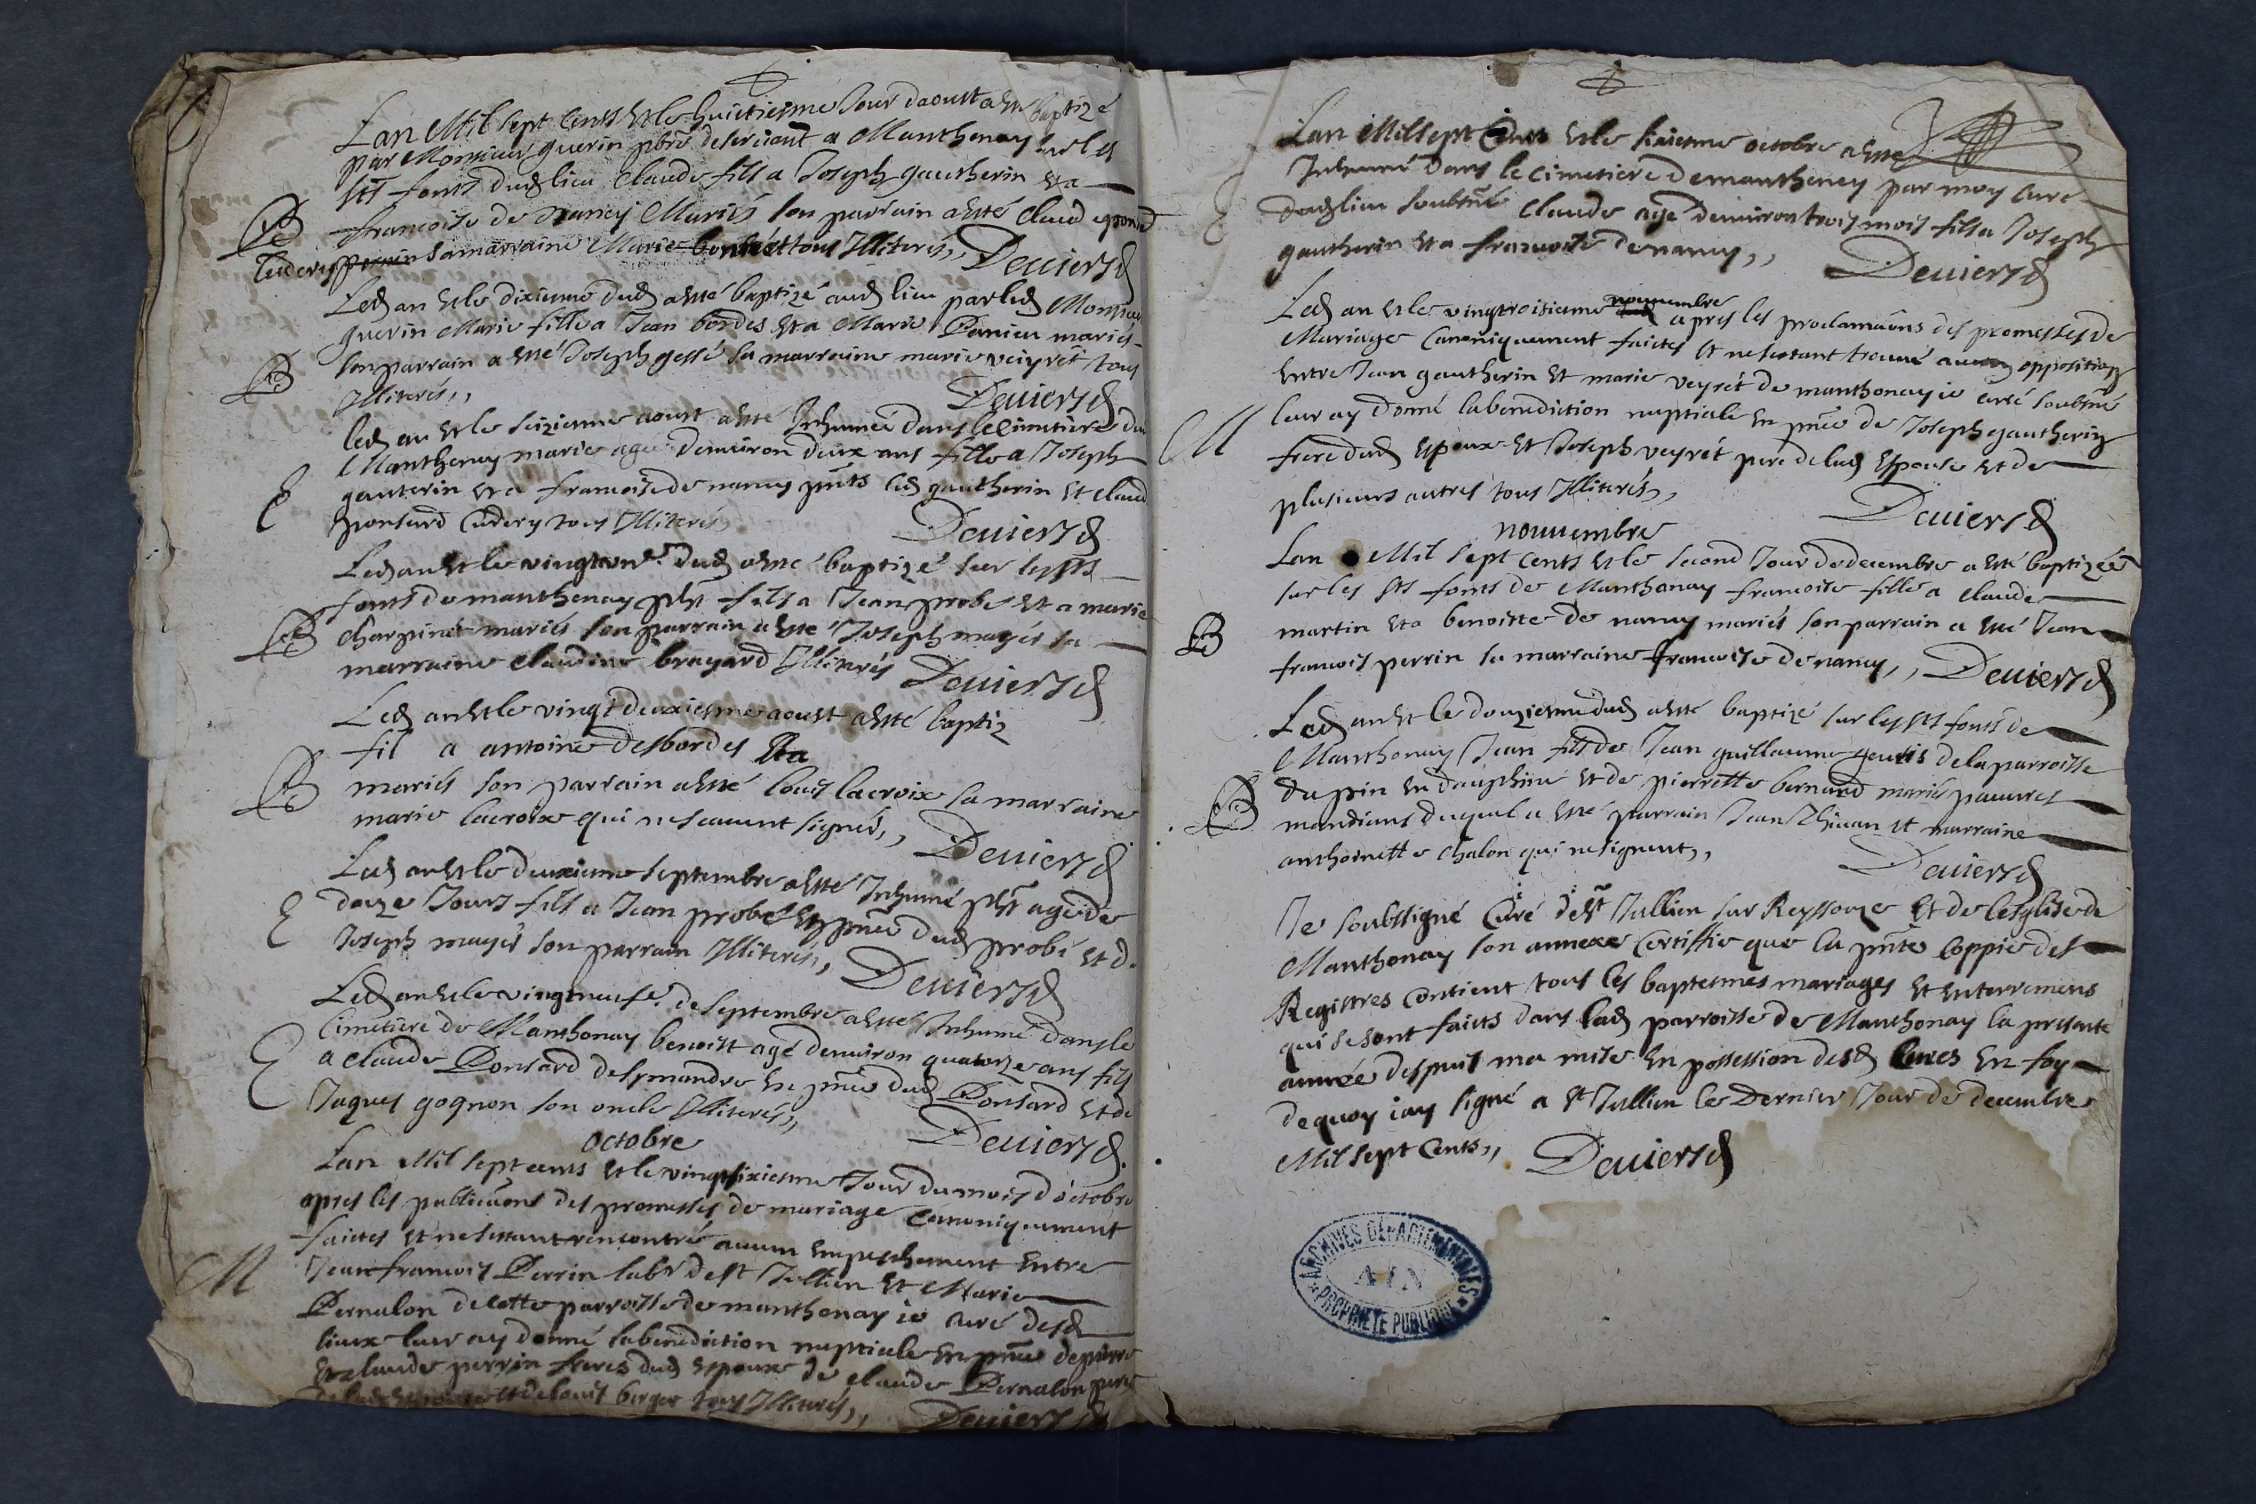 Lan Mil sept Cents et le huictiesme Jour daoust a este baptizé
par Monsieur guerin pbre deseruant a Manthenay sur les
sts fonts dud lieu Claude fils a Joseph gautherin et a
francoise de nancy Mariés son parrain a esté Claud ponsard
B
cudery perrin sa marraine Marie tous Illiterés,, Deuiers
Led an et le dixiesme dud a esté baptizé aud lieu par led Monsieur
guerin Marie fille a Jean bordes et a Marie Panieu mariés
son parrain a esté Joseph gessé sa marraine marie veyret tous
B
Illiterés,, Deuiers
led an et le seiziesme aoust a esté Inhumée dans le Cimetiere de
Manthenay marie agee denuiron deux ans fille a Joseph
gauterin et a francoise de nancy pnts led gautherin et claud
E
ponsard Cudery tous Illiterés Deuiers
Led an et le vingt dud a esté baptizé sur les sts
fonts de manthenay pht fils a Jean probé et a marie
charpinet mariés son parrain a esté Joseph mayés sa
B
marraine claudine brayard Illiterés Deuiers
Led an et le vingt deuxiesme aoust a esté baptiz
fil a antoine desbordes et a
B
mariés son parrain a esté louis lacroix sa marraine
marie lacroix qui ne scauent signer,, Deuiers
Led an et le deuxiesme septembre a esté Inhumé pht agé de
E
douze Jours fils a Jean probé en pnce dud probé et de
Joseph mayés son parrain Illiterés,, Deuiers
Led an et le vingtneufe de septembre a esté Inhumé dans le
Cimetiere de Manthonay benoist agé denuiron quatorze ans fils
E
a claude Ponsard desymandre en pnce dud Ponsard et de
Jaques gognon son oncle Illiterés,, Deuiers
octobre
Lan Mil sept cents et le vingtsixiesme Jour du mois doctobre
apres les publicaons des promesses de mariage canoniquement
faictes et ne sestant rencontré aucun empeschement entre
M
Jean francois Perrin labr de st Jullien et Marie
Pernalon de cette parroisse de manthenay ie curé desd
lieux leur ay donné la benediction nuptiale en pnce de pierre
et claude perrin freres dud espoux de claude Pernalon pere
et de louis berger tous Illiterés,, Deuiers
Lan Mil sept Cents et le sixiesme octobre a esté
Inhumé dans le cimetiere de manthenay par moy curé
E
dud lieu soubsné Claude agé denuiron trois mois fils a Joseph
gautherin et a francoise de nancy,, Deuiers
Led an et le vingtroisiesme nouuembre apres les proclamaons des promesses de
Mariage Canoniquement faictes et ne sestant trouué aucun opposition
entre Jean gautherin et marie veyrét de manthonay ie curé soubsné
M
leur ay donné la benediction nuptiale en pnce de Joseph gautherin
frere dud espoux et Joseph veyrét pere de lad espouse et de
plusieurs autres tous Illiterés,, Deuiers
nouuembre
Lan Mil sept cents et le second Jour de decembre a esté baptizée
sur les sts fonts de Manthonay francoise fille a claude
B
martin et a benoitte de nancy mariés son parrain a esté Jean
francois perrin sa marraine francoise de nancy,, Deuiers
Led an et le douziesme dud a esté baptizé sur les sts fonts de
Manthonay Jean fils de Jean guillaume gentis de la parroisse
du pin en dauphine et de pierrette bernard mariés pauures
B
mandians duquel a esté parrain Jean Thiuan et marraine
anthoinette chalon qui ne signent,, Deuiers
Je soubsigné Curé de st Jullien sur Reyssouze et de lesglise de
Manthonay son annexe Certiffie que la pnte Coppie des
Registres Contient tous les baptesmes mariages et enterremens
qui se sont faicts dans lad parroisse de Manthonay la presente
année despuis ma mise en possession desd Cures en foy
de quoy iay signé a st Jullien le Dernier Jour de decembre
Mil sept Cents,, Deuiers
ARCHIVES DÉPARTEMENTALES
AIN
PROPRIÉTÉ PUBLIQUE